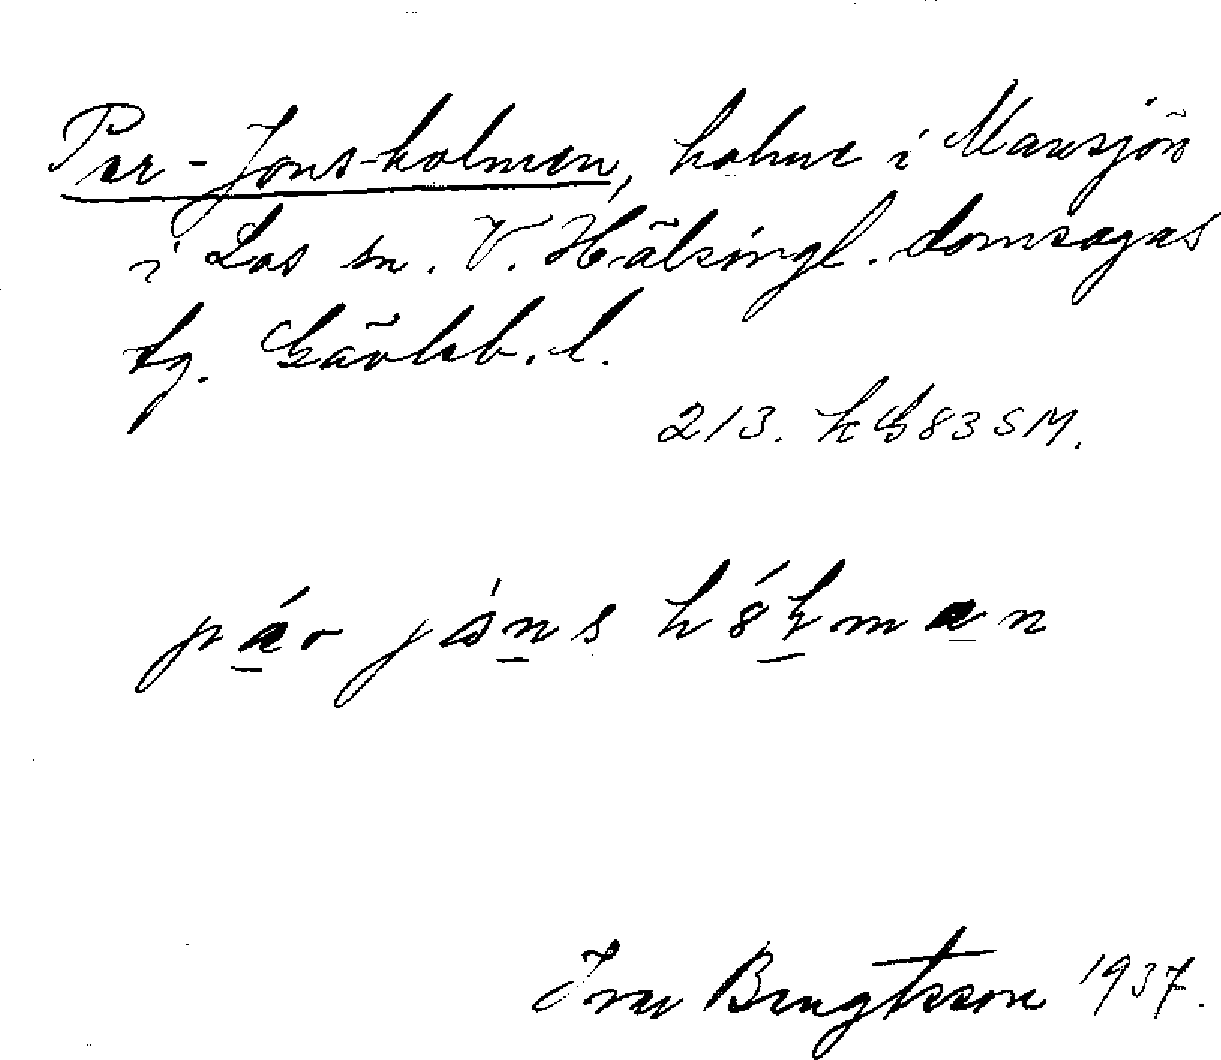 Per-Jons-holmen, holme i Marsjön
i Los sn. V. Hälsingl. domsagas
tg. Gävleb. l.
213. hG83SM.
pär jóns hólman
Bengtsson 1937.